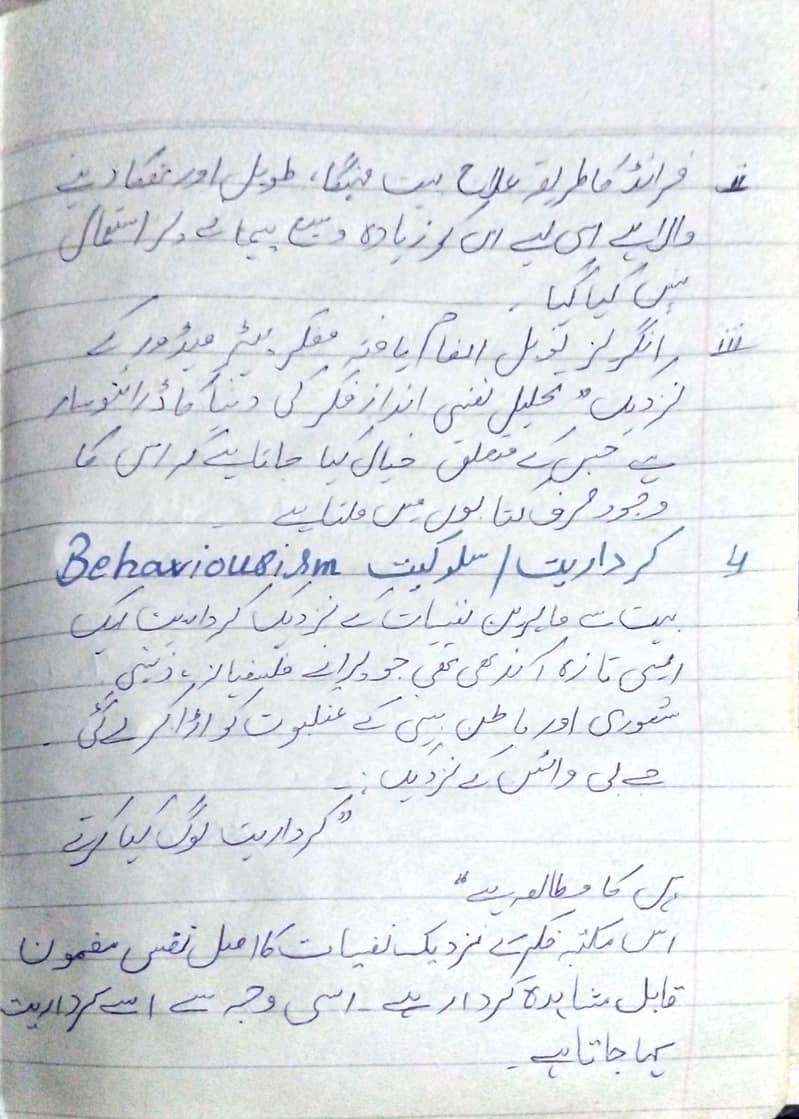 ii فرائڈ کا طریقہ علاج بہت مہنگا، طویل اور تھکا دینے
والا ہے اسی لیے اس کو زیادہ وسیع پیمانے پر استعمال
نہیں کیا گیا۔
iii انگریز نوبل انعام یافتہ مفکر پیٹر میڈور کے
نزدیک " تحلیل نفسی انداز فکر کی دنیا کا ڈائنوسار
ہے جس کے متعلق خیال کیا جاتا ہے کہ اس کا
وجود صرف کتابوں میں ملتا ہے
4 کرداریت / سلوکیت Behaviourism
بہت سے ماہرین نفسیات کے نزدیک کرداریت ایک
ایسی تازہ آندھی تھی جو پرانے فلسفیانہ، ذہنی
شعوری اور باطن بینی کے عنکبوت کو اڑا کر لے گئی۔
جے بی واٹسن کے نزدیک :۔
"کرداریت لوگ کیا کرتے
ہیں کا مطالعہ ہے"
اس مکتبہ فکر کے نزدیک نفسیات کا اصل نفس مضمون
قابل مشاہدہ کردار ہے۔ اسی وجہ سے اسے کرداریت
کہا جاتا ہے۔